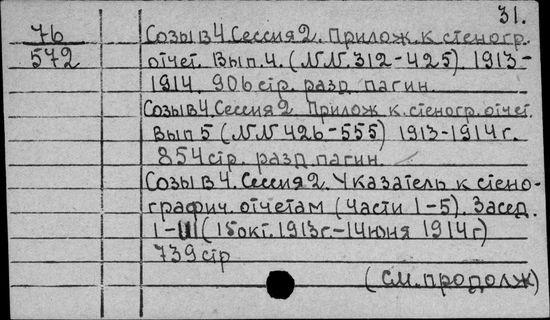 31.
76
572
Созыв 4. Сессия 2. Прилож. к стеногр.
отчет. Вып. 4. (NN. 312-425). 1913-
1914. 906 стр. разд. пагин.
Созыв 4. Сессия 2. Прилож к. стеногр. отчет.
Вып 5 (NN 426-555) 1913-1914 г.
854 стр. разд. пагин.
Созыв 4. Сессия 2. Указатель к стено-
графич. отчетам (Части 1-5). Засед.
(15 окт. 1913 г. - 14 июня 1914 г)
739 стр
(см. продолж)